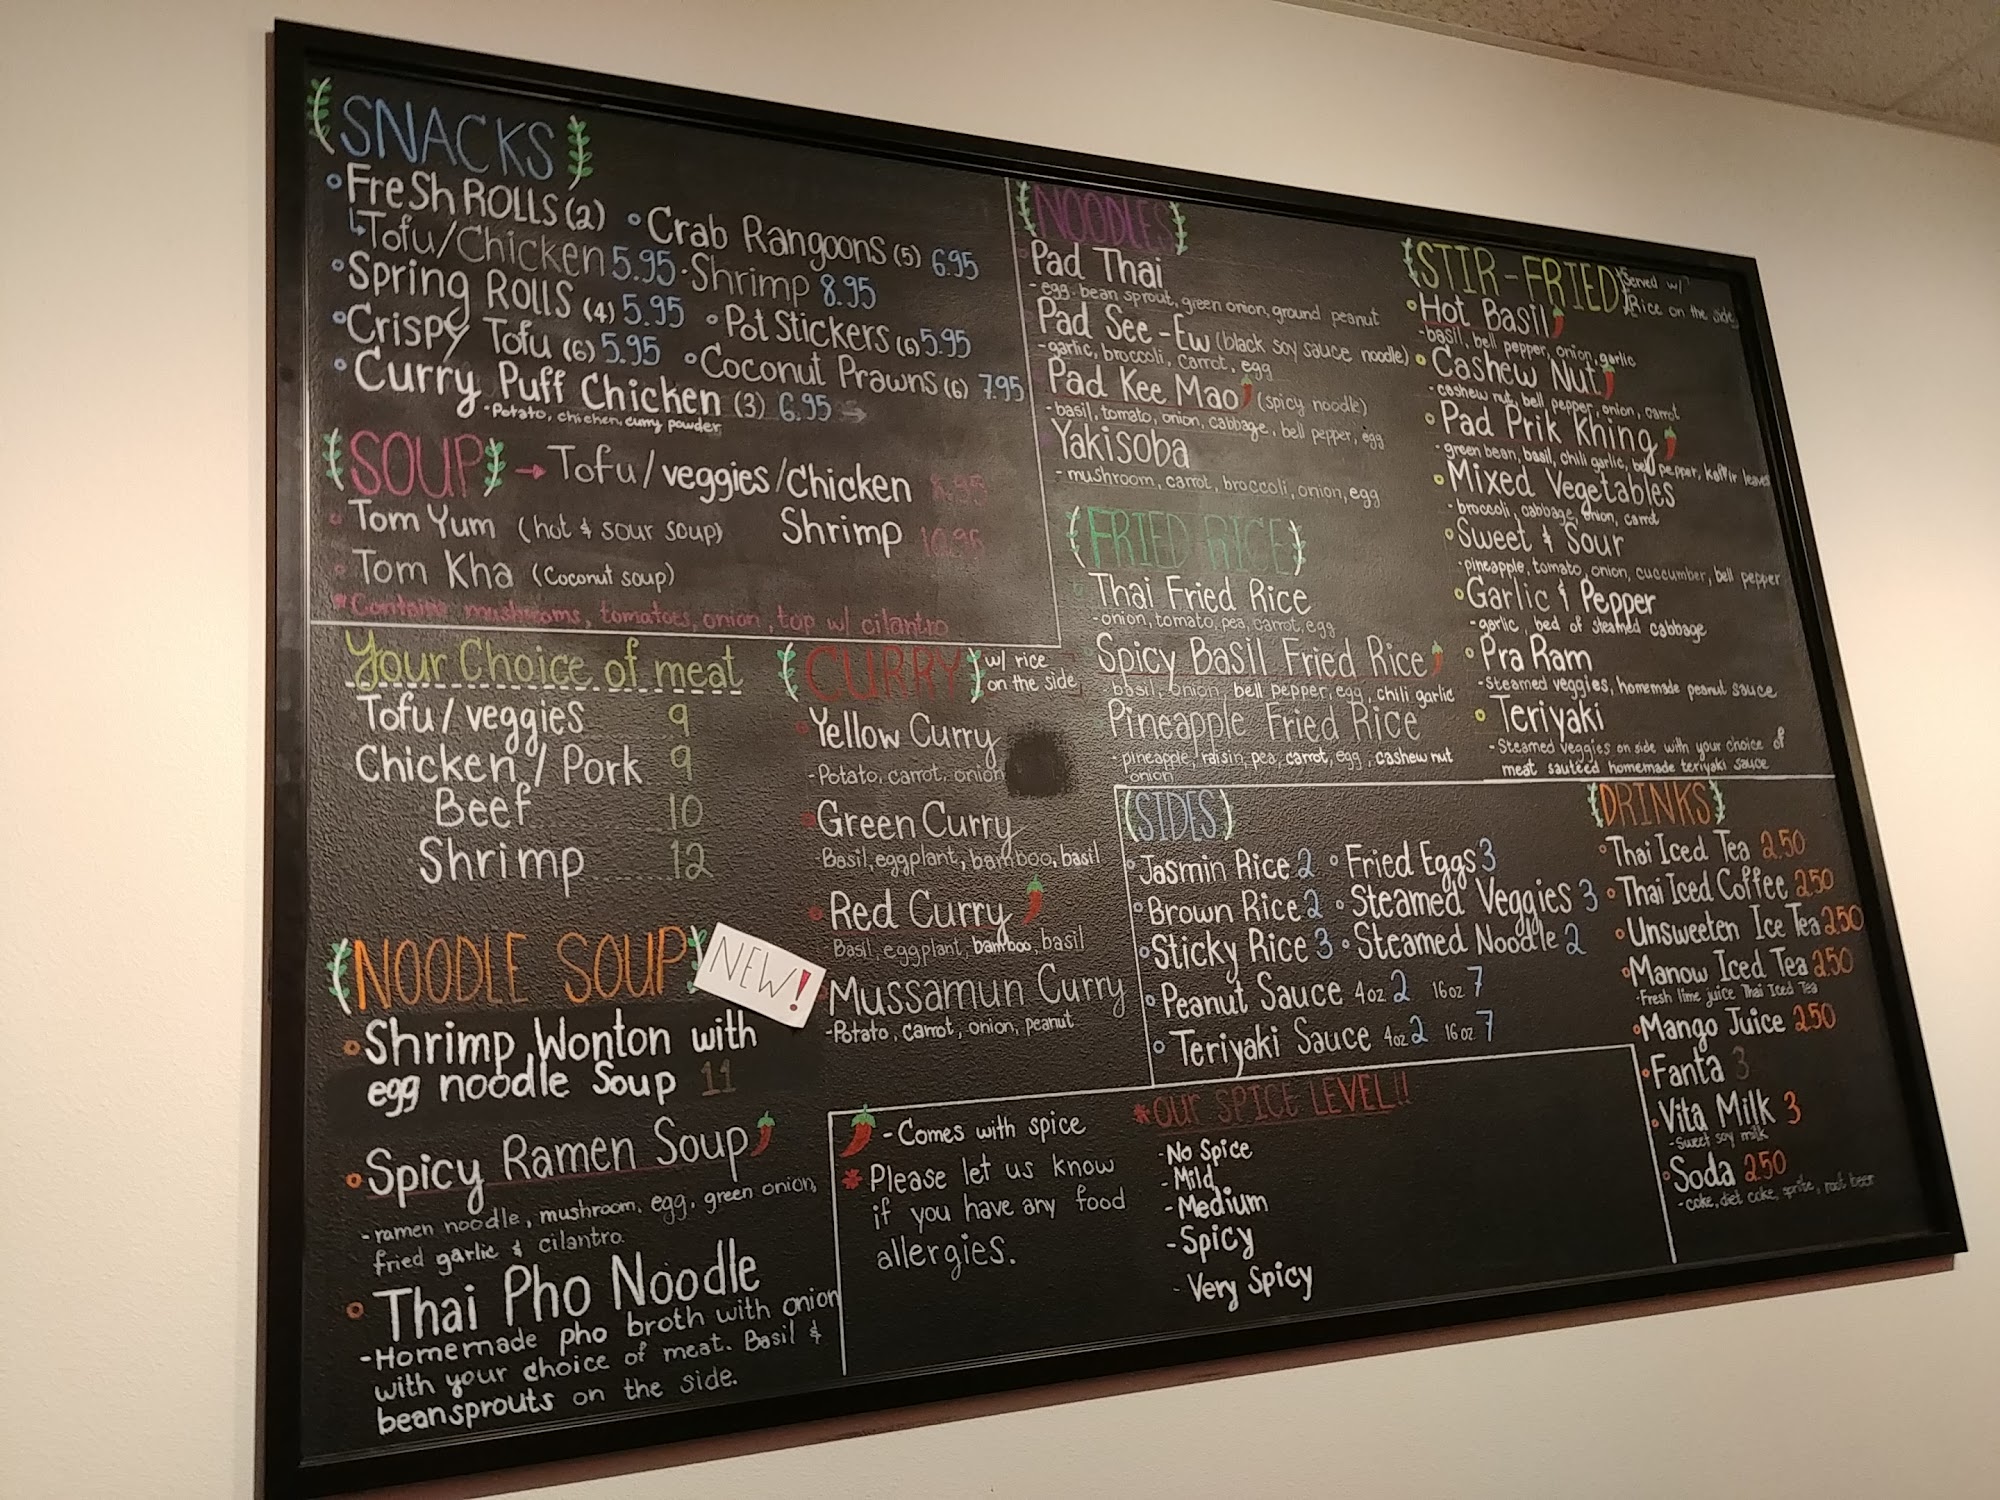 SNACKS
Fresh ROLLS (2)
Tofu/Chicken 5.95 · Shrimp 8.95
Crab Rangoons (5) 6.95
Spring ROLLS (4) 5.95
Pot Stickers (6) 5.95
Crispy Tofu (6) 5.95
Coconut Prawns (6) 7.95
Curry Puff Chicken (3) 6.95
-Potato, chicken, curry powder
SOUP → Tofu/veggies/Chicken 8.95
Shrimp 10.95
Tom Yum (hot & sour soup)
Tom Kha (Coconut soup)
*Contains mushrooms, tomatoes, onion, top w/ cilantro
Your Choice of meat
Tofu/veggies 9
Chicken/Pork 9
Beef 10
Shrimp 12
NOODLE SOUP NEW!
Shrimp Wonton with
egg noodle Soup 11
Spicy Ramen Soup
-ramen noodle, mushroom, egg, green onion,
fried garlic & cilantro.
Thai Pho Noodle
-Homemade pho broth with onion
with your choice of meat. Basil &
beansprouts on the side.
CURRY w/ rice
on the side
Yellow Curry
-Potato, carrot, onion
Green Curry
-Basil, eggplant, bamboo, basil
Red Curry
Basil, eggplant, bamboo, basil
Mussamun Curry
-Potato, carrot, onion, peanut
NOODLES
Pad Thai
-egg, bean sprout, green onion, ground peanut
Pad See-Ew (black soy sauce noodle)
-garlic, broccoli, carrot, egg
Pad Kee Mao (spicy noodle)
-basil, tomato, onion, cabbage, bell pepper, egg
Yakisoba
-mushroom, carrot, broccoli, onion, egg
FRIED RICE
Thai Fried Rice
-onion, tomato, pea, carrot, egg
Spicy Basil Fried Rice
-basil, onion, bell pepper, egg, chili garlic
Pineapple Fried Rice
-pineapple, raisin, pea, carrot, egg, cashew nut
onion
STIR-FRIED Served w/
Rice on the side
Hot Basil
-basil, bell pepper, onion, garlic
Cashew Nut
-cashew nut, bell pepper, onion, carrot
Pad Prik Khing
-green bean, basil, chili garlic, bell pepper, kaffir leaves
Mixed Vegetables
-broccoli, cabbage, onion, carrot
Sweet & Sour
-pineapple, tomato, onion, cuccumber, bell pepper
Garlic & Pepper
-garlic, bed of steamed cabbage
Pra Ram
-Steamed veggies, homemade peanut sauce
Teriyaki
-Steamed veggies on side with your choice of
meat sauteed homemade teriyaki sauce
SIDES
Jasmin Rice 2
Fried Eggs 3
Brown Rice 2
Steamed Veggies 3
Sticky Rice 3
Steamed Noodle 2
Peanut Sauce 4oz 2 16oz 7
Teriyaki Sauce 4oz 2 16oz 7
DRINKS
Thai Iced Tea 2.50
Thai Iced Coffee 2.50
Unsweeten Ice Tea 2.50
Manow Iced Tea 2.50
-Fresh lime juice Thai Iced Tea
Mango Juice 2.50
Fanta 3
Vita Milk 3
-Sweet soy milk
Soda 2.50
-coke, diet coke, sprite, root beer
-Comes with spice
*Please let us know
if you have any food
allergies.
*OUR SPICE LEVEL!!
-No Spice
-Mild
-Medium
-Spicy
-Very Spicy